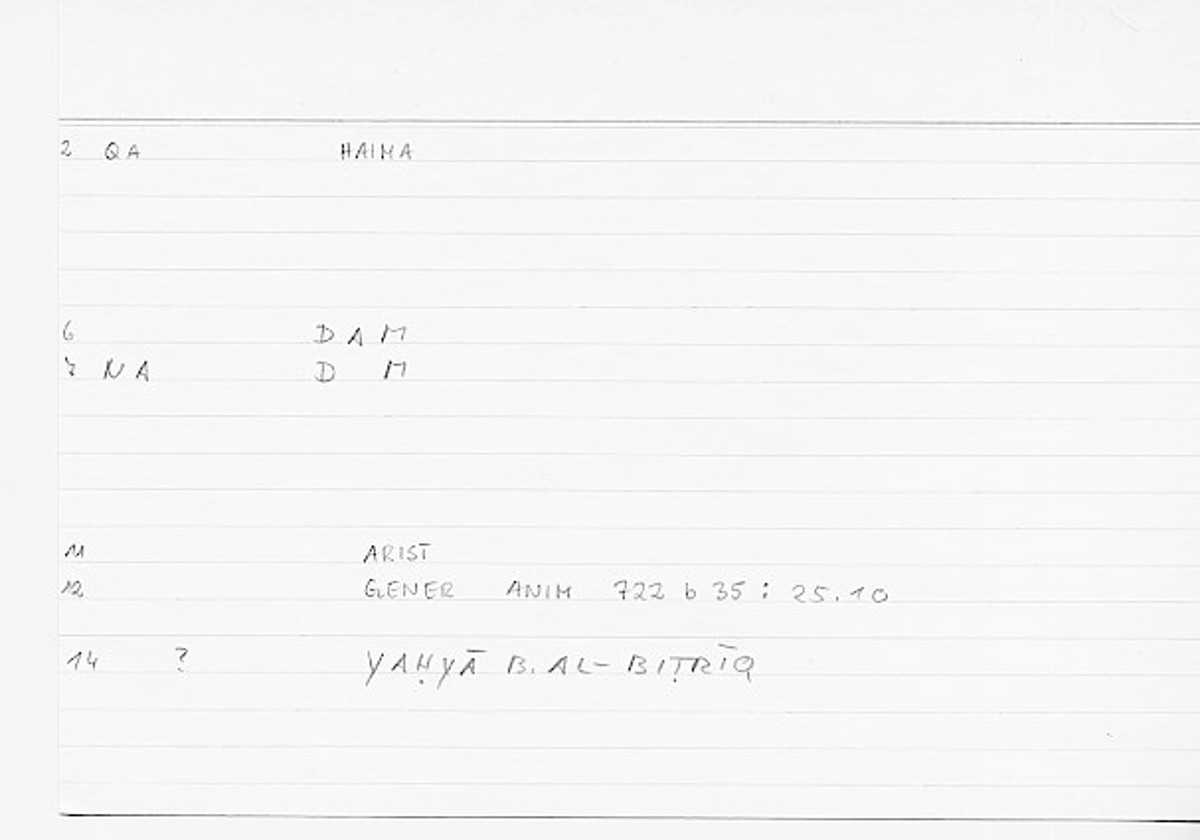 2 QA HAIMA
6 DAM
7 NA D M
11 ARIST
12 GENER ANIM 722 b 35 : 25.10
14 ? YAḤYĀ B. AL-BIṬRĪQ